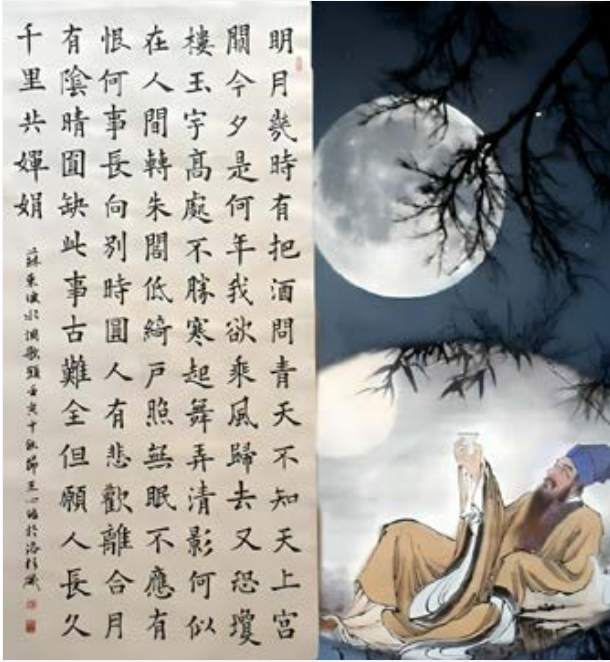 明月幾時有把酒問青天不知天上宮
闕今夕是何年我欲乘風歸去又恐瓊
樓玉宇高處不勝寒起舞弄清影何似
在人間轉朱閣低綺戶照無眠不應有
恨何事長向別時圓人有悲歡離合月
有陰晴圓缺此事古難全但願人長久
千里共嬋娟
蘇東坡水調歌頭壬寅中秋節王心於洛杉磯